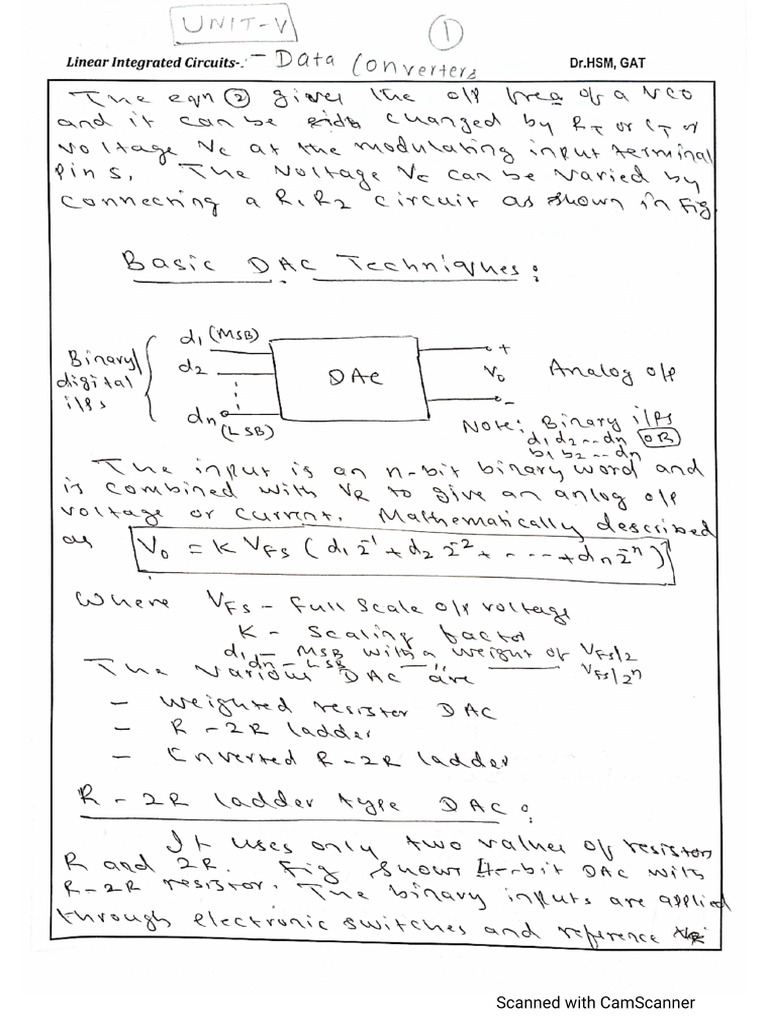 UNIT-V
1
Linear Integrated Circuits-: - Data Converters
Dr.HSM, GAT
The eqn (2) gives the o/p freq of a VCO
and it can be changed by RT or CT or
voltage Vc at the modulating input terminal
pin 5. The voltage Vc can be varied by
connecting a R1R2 circuit as shown in Fig
Basic DAC Techniques:
Binary/
digital
i/ps
d1 (MSB)
d2
dn
(LSB)
DAC
+
Vo
-
Analog o/p
Note: Binary i/ps
d1 d2 -- dn OR
b1 b2 -- dn
The input is an n-bit binary word and
is combined with VR to give an anlog o/p
voltage or current. Mathematically described
as Vo = K VFS (d1 2^-1 + d2 2^-2 + - - -- + dn 2^-n)
Where VFS - Full Scale o/p voltage
K - Scaling factor
d1 - MSB with a weight of VFS/2
dn - LSB —"— VFS/2^n
The various DAC are
- Weighted resistor DAC
- R-2R ladder
- Inverted R-2R ladder
R-2R ladder type DAC:
It uses only two values of resistor
R and 2R. Fig shows 4-bit DAC with
R-2R resistor. The binary inputs are applied
through electronic switches and reference
Scanned with CamScanner